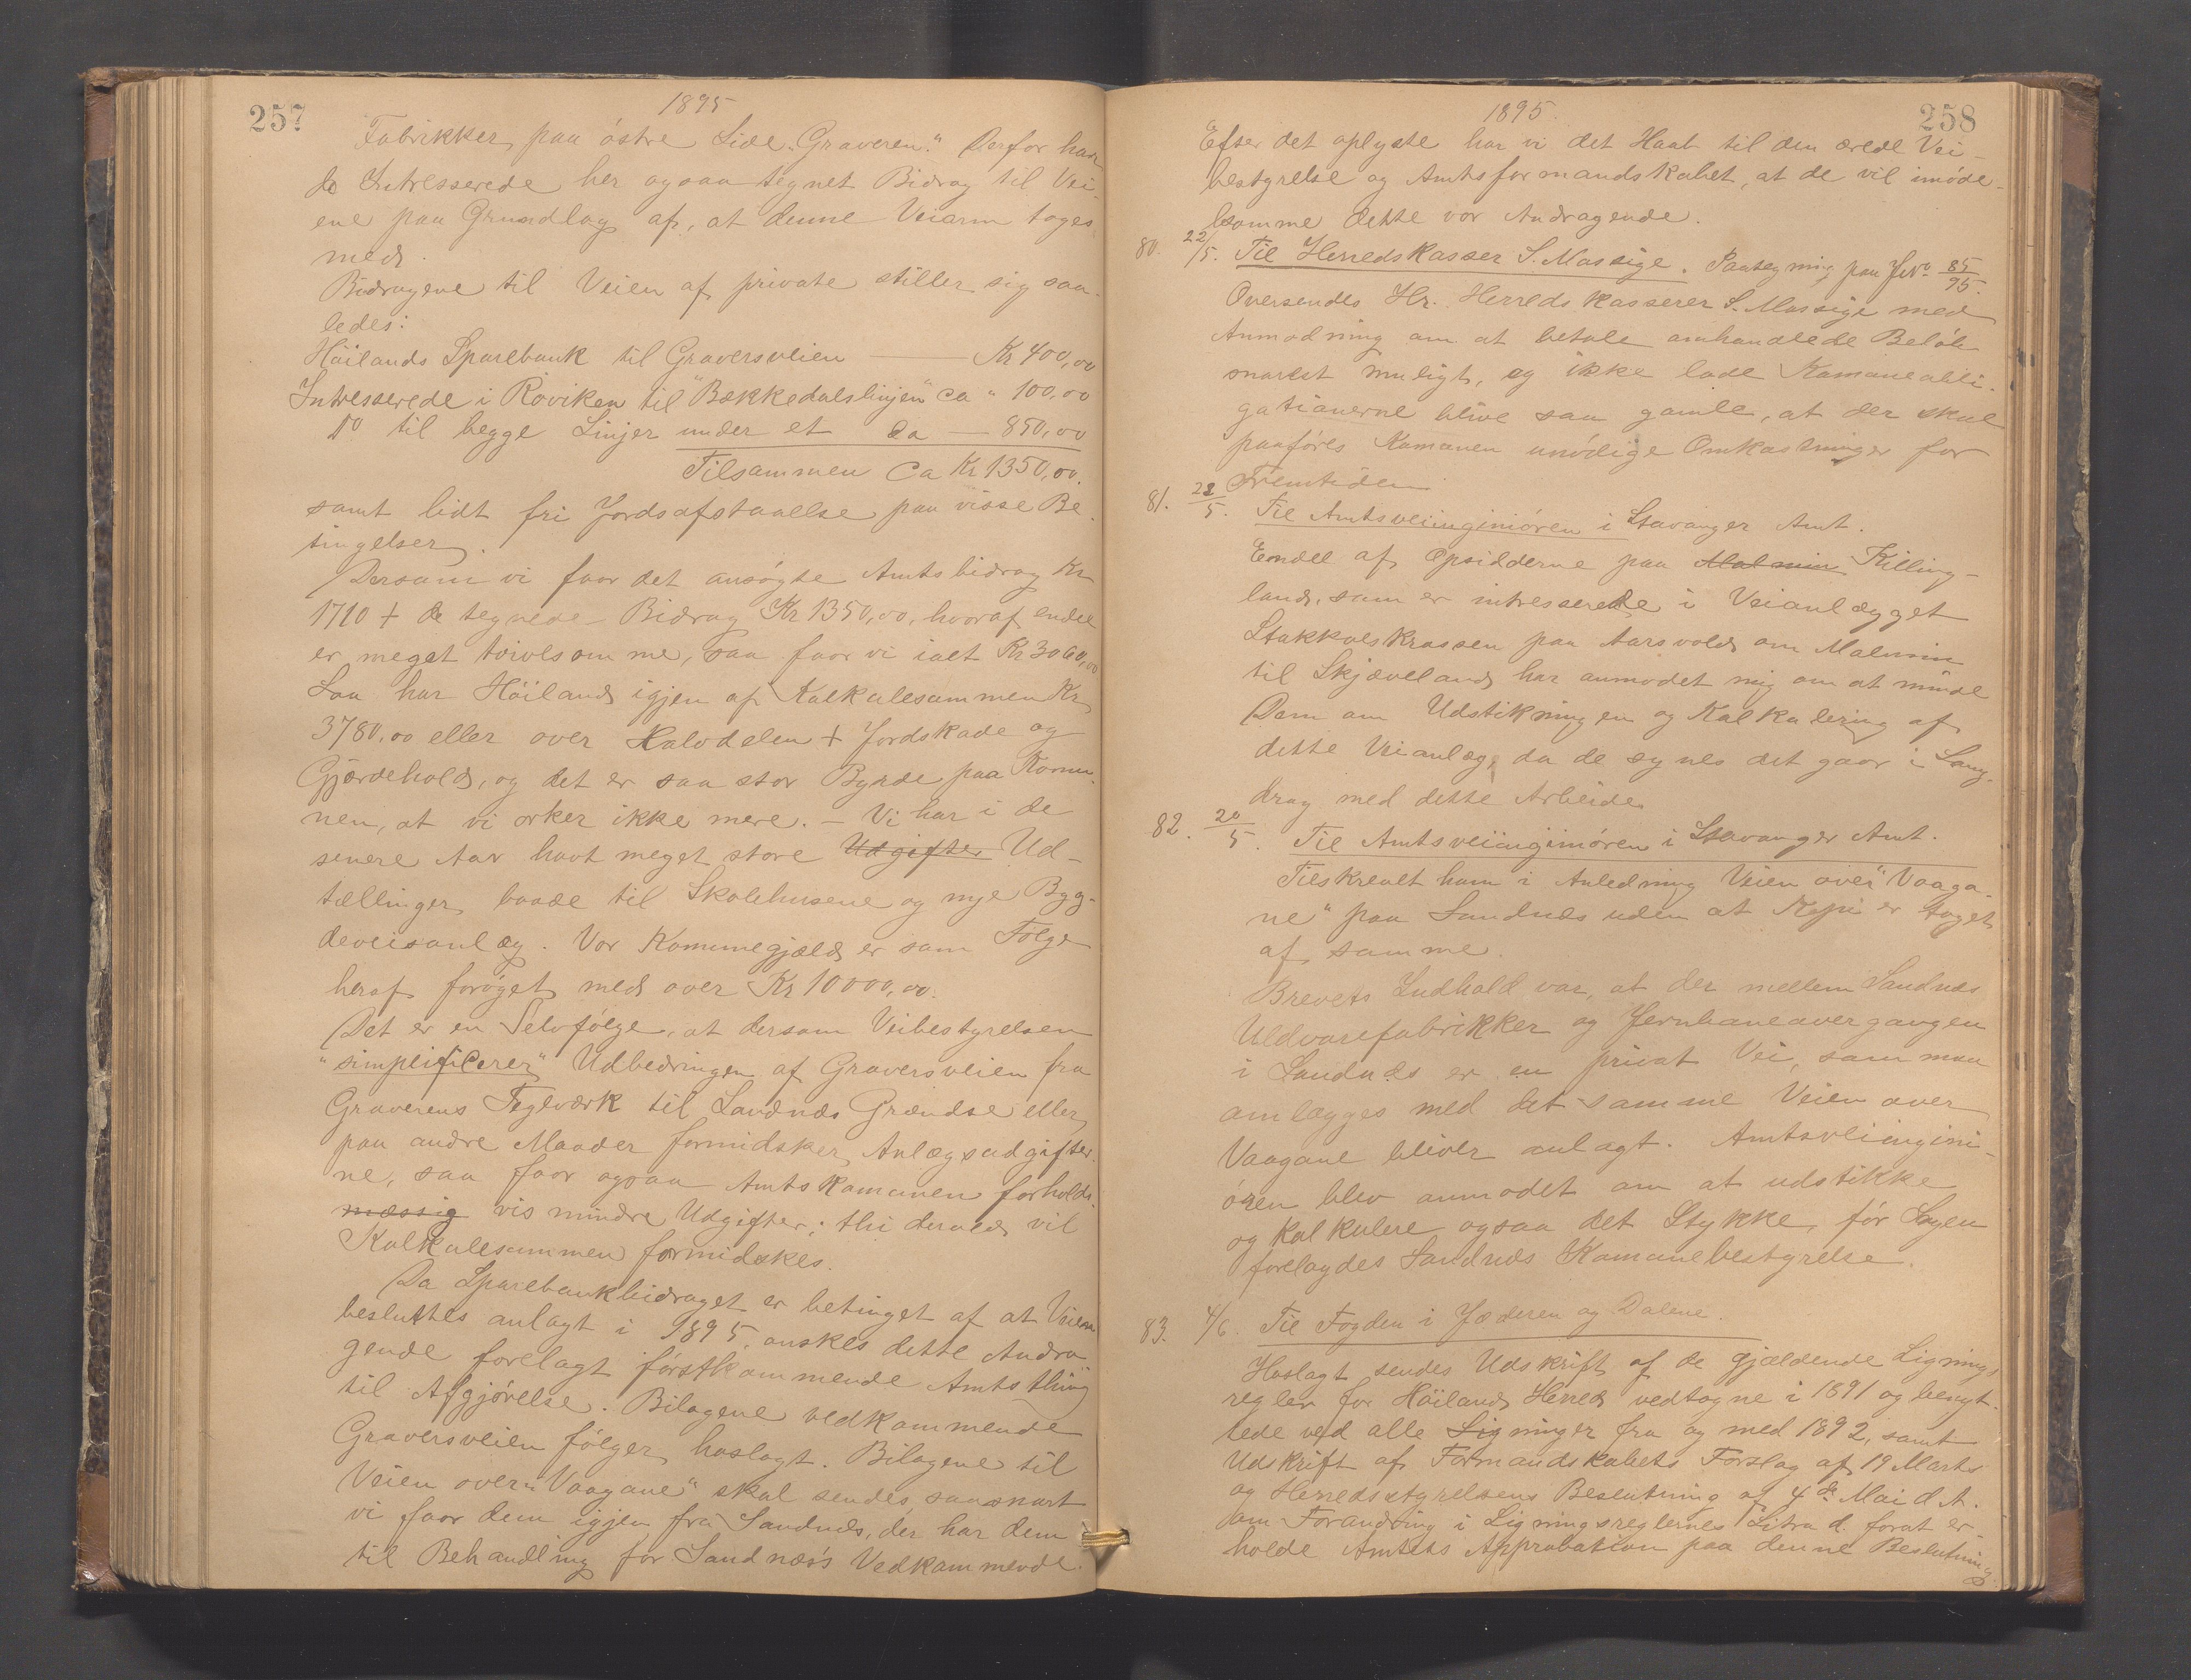 257
1895
Fabrikker paa østre Side „Graveren.“ Derfor har
de Intresserede her ogsaa tegnet Bidrag til Vei-
ene paa Grundlag af, at denne Veiarm toges
med.
Bidragene til Veien af private stiller sig saa-
ledes:
Höilands Sparebank til Graversveien — Kr 400,00
Intresserede i Roviken til "Bækkedalslinjen" ca " 100,00
Do til begge Linjer under et ca — 850,00
Tilsammen Ca Kr 1350,00.
samt lidt fri Jordsafstaaelse paa visse Be-
tingelser.
Dersom vi faar det ansøgte Amtsbidrag Kr
1710 + de tegnede Bidrag Kr 1350,00, hvoraf endel
er meget tvivlsomme, saa faar vi ialt Kr 3060,00
Saa har Höiland igjen af Kalkulesummen Kr
3780,00 eller over Halvdelen + Jordskade og
Gjærdehold, og det er saa stor Byrde paa Komu-
nen, at vi orker ikke mere. — Vi har i de
senere Aar havt meget store Udgifter Ud-
tællinger baade til Skolehusene og nye Byg-
deveisanlæg. Vor Kommunegjæld er som Følge
heraf forøget med over Kr 10000,00.
Det er en Selvfølge, at dersom Veibestyrelsen
"simplificerer" Udbedringen af Graversveien fra
Graverens Teglværk til Sandnæs Grændse eller
paa andre Maader formidsker Anlægsudgifter-
ne, saa faar ogsaa Amtskomunen forholds-
mæssig vis mindre Udgifter; thi derved vil
Kalkulesummen formidskes.
Da Sparebankbidraget er betinget af at Veiene
besluttes anlagt i 1895, ønskes dette Andra-
gende forelagt førstkommende Amtsthing
til Afgjørelse. Bilagene vedkommende
Graversveien følger hoslagt. Bilagene til
Veien over „Vaagane“ skal sendes, saasnart
vi faar dem igjen fra Sandnæs, der har dem
til Behandling for Sandnæs's Vedkommende.
1895.
258
Efter det oplyste har vi det Haab til den ærede Vei-
bestyrelse og Amtsformandskabet, at de vil imøde-
komme dette vor Andragende.
80. 22/5. Til Herredskasser S. Mossige. Paategning paa J.No 85/95.
Oversendes Hr. Herredskasserer S. Mossige med
Anmodning om at betale omhandlede Beløb
snarest muligt, og ikke lade Komuneobli-
gationerne blive saa gamle, at der skal
paaføres Komunen unødige Omkostninger for
Fremtiden.
81. 22/5. Til Amtsveiinginiøren i Stavanger Amt.
Endel af Opsidderne paa Malmin Killing-
land, som er intresserede i Veianlægget
Stokkalskrossen paa Aarsvold om Malmin
til Skjæveland har anmodet mig om at minde
Dem om Udstikningen og Kalkulering af
dette Veianlæg, da de synes det gaar i Lang-
drag med dette Arbeide.
82. 20/5. Til Amtsveiinginiøren i Stavanger Amt.
Tilskrevet ham i Anledning Veien over "Vaaga-
ne" paa Sandnæs uden at Kopi er taget
af samme.
Brevets Indhold var, at der mellem Sandnæs
Uldvarefabrikker og Jernbaneovergangen
i Sandnæs er en privat Vei, som maa
omlægges med det samme Veien over
Vaagane bliver anlagt. Amtsveiingini-
øren blev anmodet om at udstikke
og kalkulere ogsaa det Stykke, før Sagen
forelagdes Sandnæs Komunebestyrelse.
83. 4/6. Til Fogden i Jæderen og Dalene.
Hoslagt sendes Udskrift af de gjældende Lignings-
regler for Höiland Herred vedtagne i 1891 og benyt-
tede ved alle Ligninger fra og med 1892, samt
Udskrift af Formandskabets Forslag af 19 Marts
og Herredsstyrelsens Beslutning af 4de Mai d. A.
om Forandring i Ligningsreglernes Litra d. forat er-
holde Amtets Approbation paa denne Beslutning.